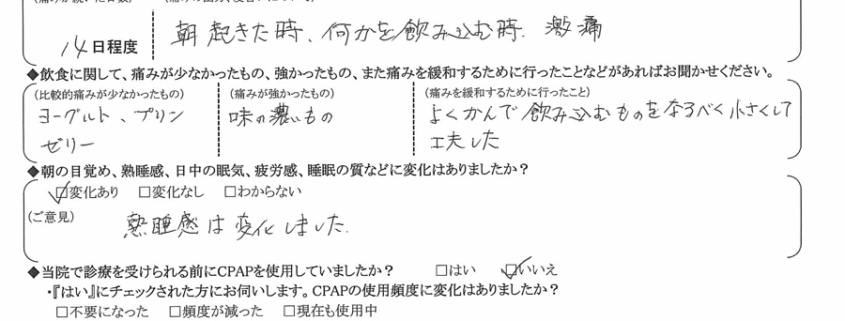 14日程度
朝起きた時、何かを飲み込む時。激痛
◆飲食に関して、痛みが少なかったもの、強かったもの、また痛みを緩和するために行ったことなどがあればお聞かせください。
(比較的痛みが少なかったもの) (痛みが強かったもの) (痛みを緩和するために行ったこと)
ヨーグルト、プリン 味の濃いもの よくかんで飲み込むものをなるべく小さくして
ゼリー 工夫した
◆朝の目覚め、熟睡感、日中の眠気、疲労感、睡眠の質などに変化はありましたか?
☑変化あり □変化なし □わからない
(ご意見) 熟睡感は変化しました.
◆当院で診療を受けられる前にCPAPを使用していましたか? □はい ☑いいえ
・『はい』にチェックされた方にお伺いします。CPAPの使用頻度に変化はありましたか?
□不要になった □頻度が減った □現在も使用中